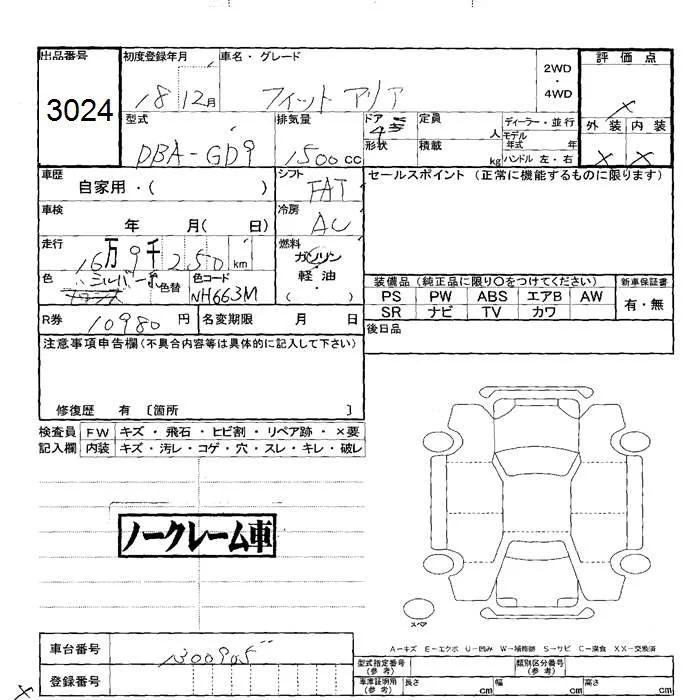 出品番号 初度登録年月 車名・グレード 2WD・4WD 評価点
3024 18 12月 フィット アリア ×
外装 内装
× ×
型式 排気量 ドア 形状 定員 人 積載 kg ディーラー・並行
モデル年式 年
ハンドル 左・右
DBA-GD9 1500cc 4
車歴 自家用・( ) シフト FAT セールスポイント (正常に機能するものに限ります)
車検 年 月( 日) 冷房 AC
走行 16万9千250km 燃料 ガソリン 軽油 ・( )
色 シルバー 色替 色コード NH663M
装備品 (純正品に限り○をつけてください) 新車保証書
PS PW ABS エアB AW 有・無
SR ナビ TV カワ
R券 10980円 名変期限 月 日 後日品
注意事項申告欄(不具合内容等は具体的に記入して下さい)
修復歴 有 〔箇所 〕
検査員 FW キズ・飛石・ヒビ割・リペア跡・×要
記入欄 内装 キズ・汚レ・コゲ・穴・スレ・キレ・破レ
ノークレーム車
スペア
A-キズ E-エクボ U-凹み W-補修跡 S-サビ C-腐食 XX-交換済
車台番号 1300905
登録番号
型式指定番号(参考) 類別区分番号(参考)
車庫証明用(参考) 長さ cm 幅 cm 高さ cm
×